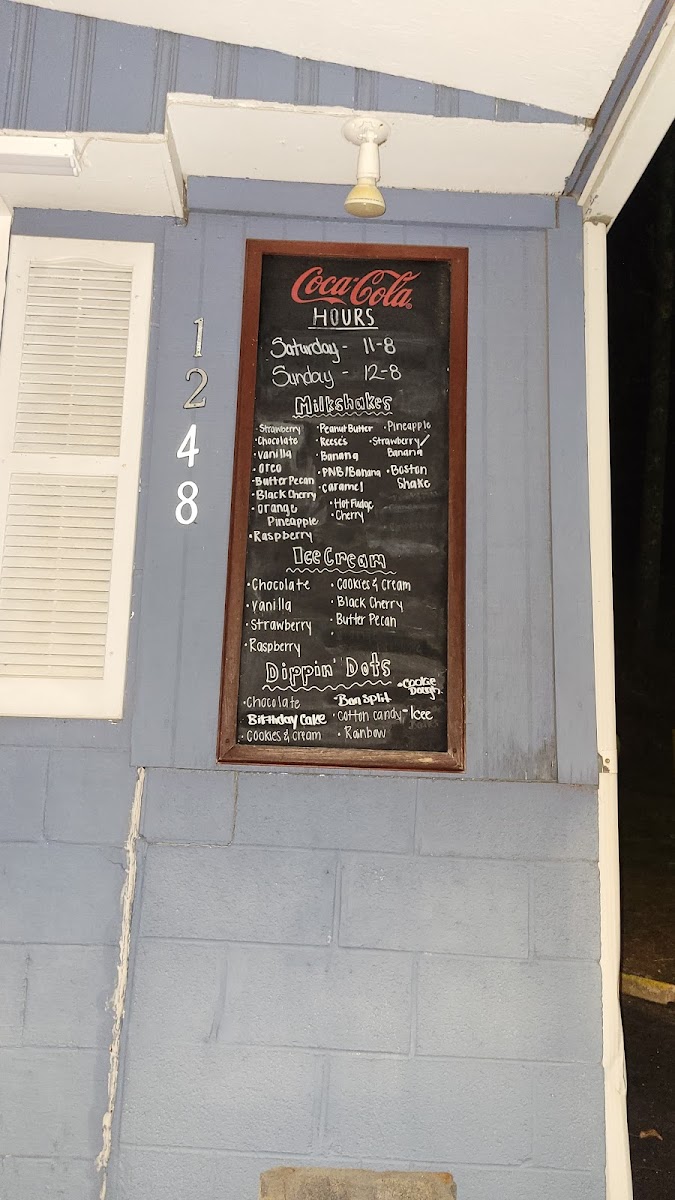 Coca-Cola
HOURS
Saturday - 11-8
Sunday - 12-8
Milkshakes
· Strawberry
· Chocolate
· Vanilla
· Oreo
· Butter Pecan
· Black Cherry
· Orange
Pineapple
· Raspberry
· Peanut Butter
· Reese's
· Banana
· PNB/Banana
· Caramel
· Hot Fudge
· Cherry
· Pineapple
· Strawberry/
Banana
· Boston
Shake
Ice Cream
· Chocolate
· Vanilla
· Strawberry
· Raspberry
· Cookies & Cream
· Black Cherry
· Butter Pecan
Dippin' Dots
· Chocolate
Birthday Cake
· Cookies & Cream
· Ban Split
· Cotton Candy
· Rainbow
· Cookie
Dough
- Icee
1
2
4
8